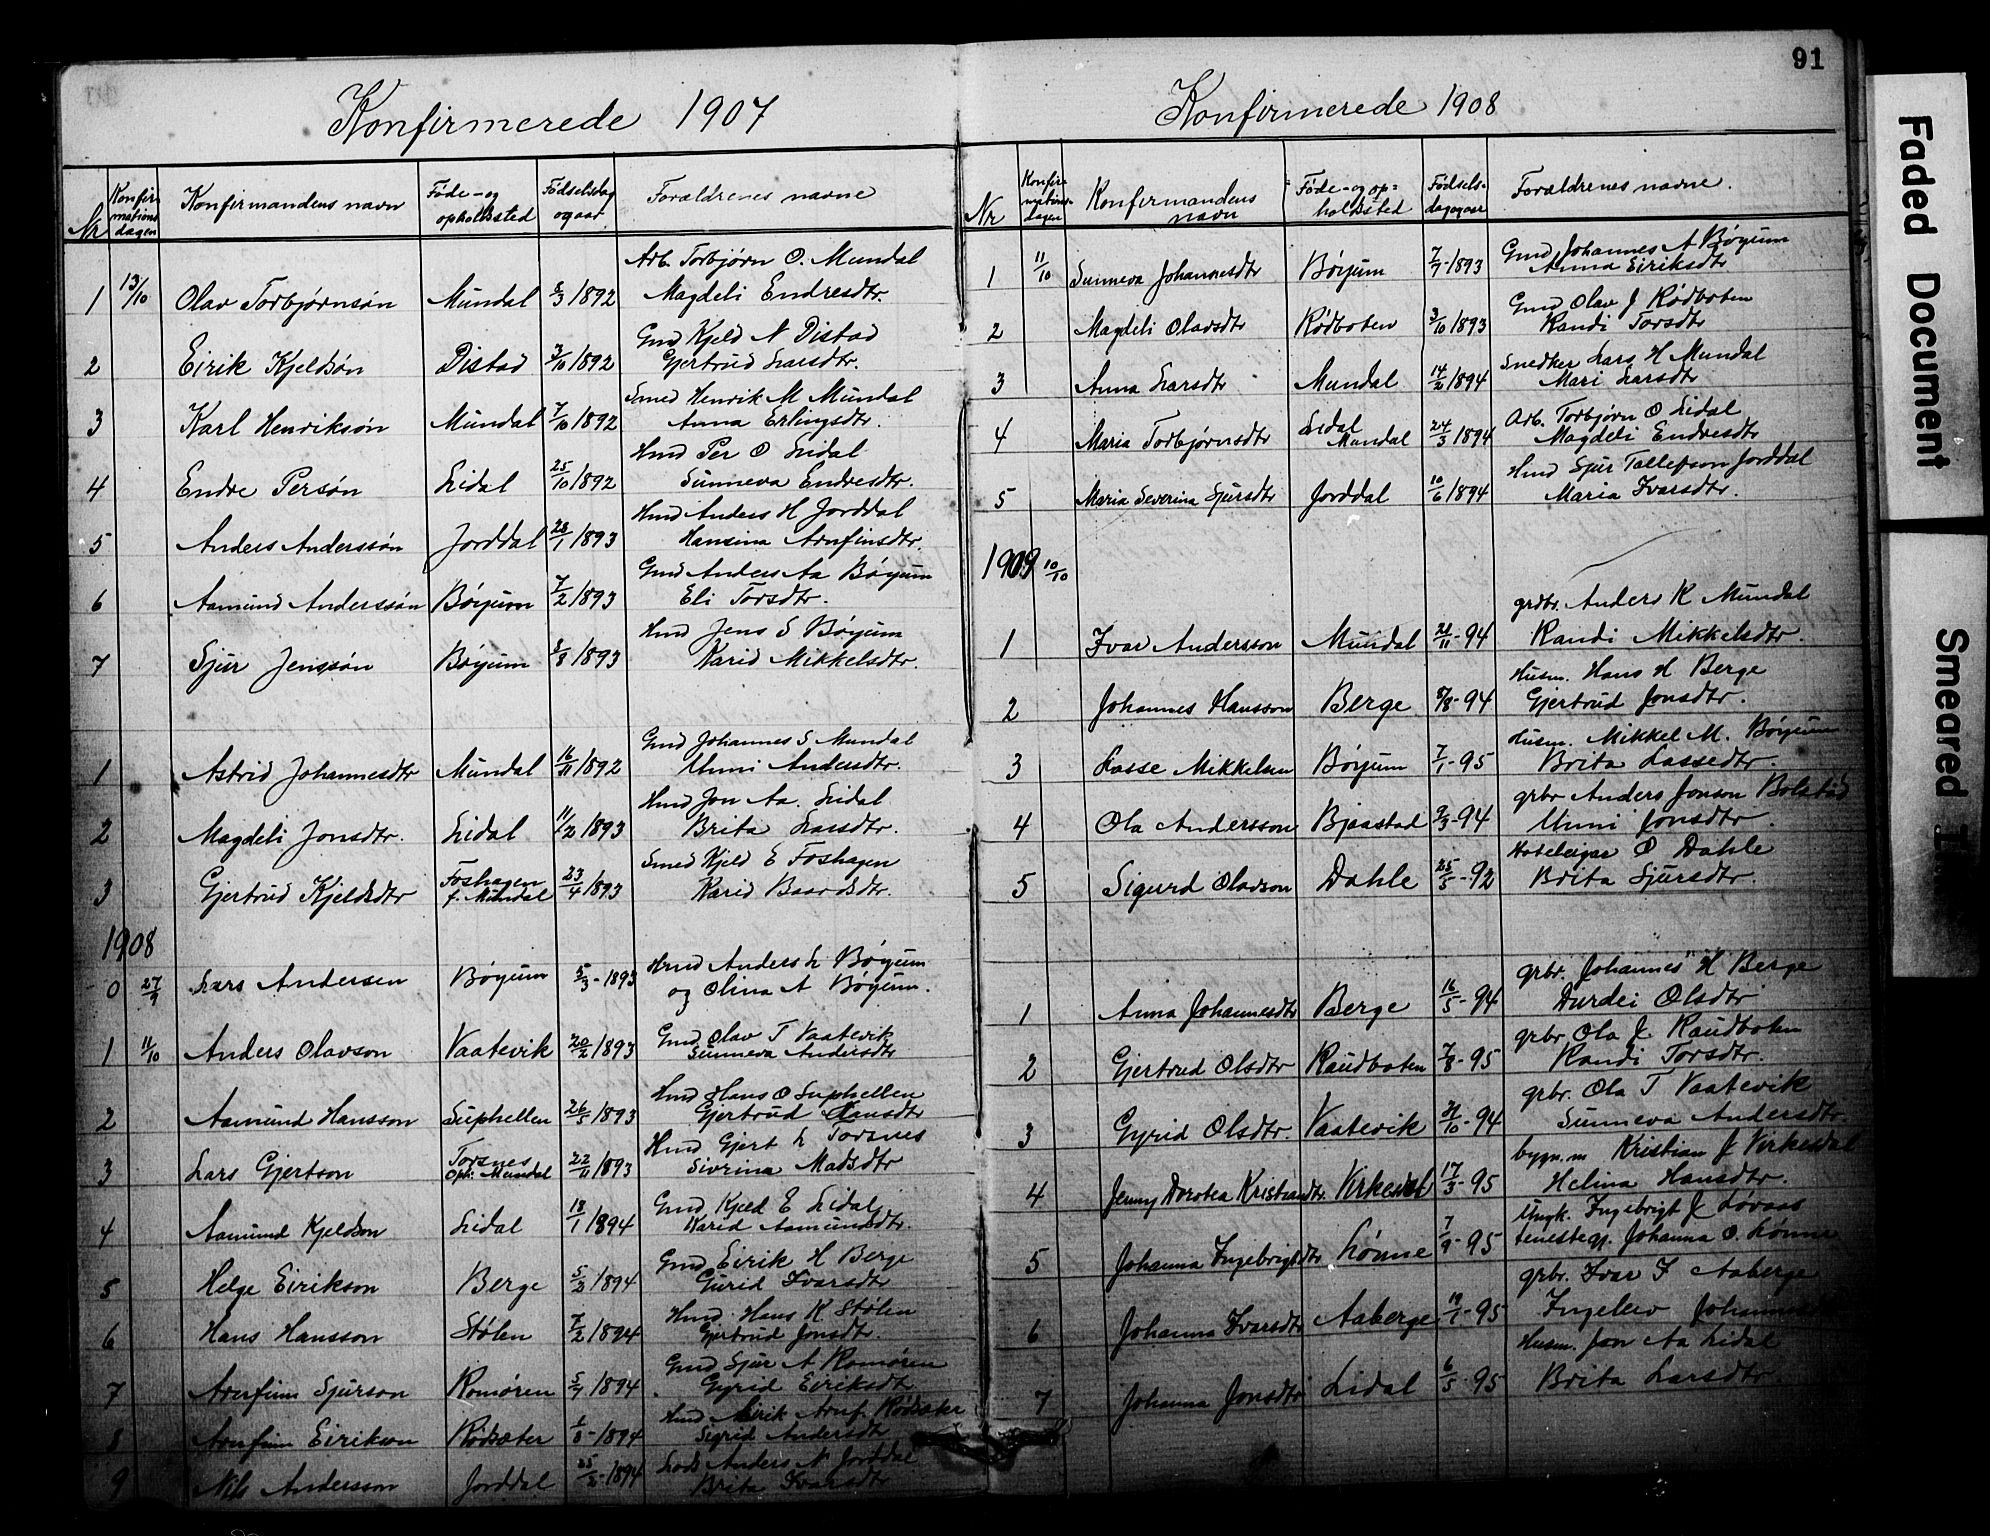 91
Konfirmerede 1907
Nr
Konfirmations dagen
Konfirmandens navn
Føde- og opholdssted
Fødselsdag og aar
Forældrenes navne
1 13/10 Olav Torbjørnsøn Mundal /3 1892 Arb. Torbjørn O. Mundal
Magdeli Endresdtr.
2 Eirik Kjeldsøn Distad 3/10 1892 Gmd Kjeld N Distad
Gjertrud Larsdtr.
3 Karl Henriksøn Mundal 7/10 1892 Smed Henrik M Mundal
Anna Erlingsdtr.
4 Endre Persøn Lidal 25/10 1892 Hmd Per O Lidal
Sunneva Endresdtr.
5 Anders Anderssøn Jorddal 28/1 1893 Hmd Anders H Jorddal
Hansina Arnfinsdtr.
6 Aamund Anderssøn Bøyum 7/2 1893 Gmd Anders Aa Bøyum
Eli Torsdtr.
7 Sjur Jenssøn Bøyum 1893 Hmd Jens S Bøyum
Karid Mikkelsdtr.
1 Astrid Johannesdtr Mundal 16/11 1892 Gmd Johannes S Mundal
Unni Andersdtr.
2 Magdeli Jonsdtr. Lidal 11/2 1893 Hmd Jon Aa. Lidal
Brita Larsdtr.
3 Gjertrud Kjeldsdtr Foshagen f. Mundal 23/4 1893 Smed Kjeld E Foshagen
Karid Baardsdtr.
1908
0 27/9 Lars Andersen Bøyum 5/3-1893 Hmd Anders L Bøyum
og Olina A Bøyum.
1 11/10 Anders Olavson Vaatevik 20/2 1893 Gmd Olav T Vaatevik
Sunneva Andersdtr
2 Aamund Hansson Suphellen 26/5 1893 Hmd Hans O Suphellen
Gjertrud Hansdtr
3 Lars Gjertson Torsnes Oph. Mundal 22/11 1893 Hmd Gjert L Torsnes
Sivrina Madsdtr
4 Aamund Kjeldson Lidal 18/1 1894 Gmd Kjeld E Lidal
Karid Aamundsdtr.
5 Helge Eirikson Berge 5/2 1894 Gmd Eirik H Berge
Gurid Ivarsdtr
6 Hans Hansson Stølen 7/2 1894 Hmd Hans K Stølen
Gjertrud Jonsdtr.
7 Arnfinn Sjurson Romøren 5/7 1894 Gmd Sjur A Romøren
Gyrid Eiriksdtr
8 Arnfinn Eirikson Rødsæter 1/8-1894 Hmd Eirik Arnf. Rødsæter
Sigrid Andersdtr
9 Nils Andersson Jorddal 25/2-1894 Anders N Jorddal
Brita Ivarsdtr
Konfirmerede 1908
Nr
Konfirmationsdagen
Konfirmandens navn
Føde- og opholdssted
Fødselsdag og aar
Forældrenes navne.
1 11/10 Sunneva Johannesdtr Bøyum 7/7-1893 Gmd Johannes A Bøyum
Anna Eiriksdtr
2 Magdeli Olavsdtr Rødboten 3/10 1893 Gmd Olav J Rødboten
Randi Torsdtr
3 Anna Larsdtr Mundal 14/2 1894 Snedker Lars H Mundal
Mari Larsdtr
4 Maria Torbjørnsdtr Lidal Mundal 24/3 1894 Arb. Torbjørn O Lidal
Magdeli Endresdtr
5 Maria Severina Sjursdtr Jorddal 10/6 1894 Hmd Sjur Tollefson Jorddal
Maria Ivarsdtr.
1909 10/10
1 Ivar Andersson Mundal 21/11-94 grdbr. Anders K Mundal
Randi Mikkelsdtr.
2 Johannes Hansson Berge 5/8-94 Husm. Hans H Berge
Gjertrud Jonsdtr.
3 Lasse Mikkelsen Bøyum 7/1-95 Husm. Mikkel M. Bøyum
Brita Lassedtr.
4 Ola Andersson Bjaastad /3-94 grbr Anders Jonson Bolstad
Unni Jonsdtr.
5 Sigurd Olavson Dahle 25/5-92 Hoteleigar O Dahle
Brita Sjursdtr.
1 Anna Johannesdtr Berge 16/5-94 grbr. Johannes H Berge
Durdei Olsdtr
2 Gjertrud Olsdtr Raudboten 7/8-95 grbr. Ola J. Raudboten
Randi Torsdtr.
3 Gyrid Olsdtr. Vaatevik 31/10-94 grbr. Ola T Vaatevik
Sunneva Andersdtr.
4 Jenny Dorotea Kristiandtr. Virkesdal 17/3-95 bygn.m Kristian J Virkesdal
Helina Hansdtr.
5 Johanna Ingebrigtsdtr Lønne 7/9-95 Ungk. Ingebrigt J Løvaas
tenestegj. Johanna O. Lønne
6 Johanna Ivarsdtr Aaberge 19/1-95 grbr. Ivar I Aaberge
Ingeleiv
7 Johanna Jonsdtr Lidal 6/5-95 Husm. Jon Aa Lidal
Brita Larsdtr.
Faded Document
Smeared